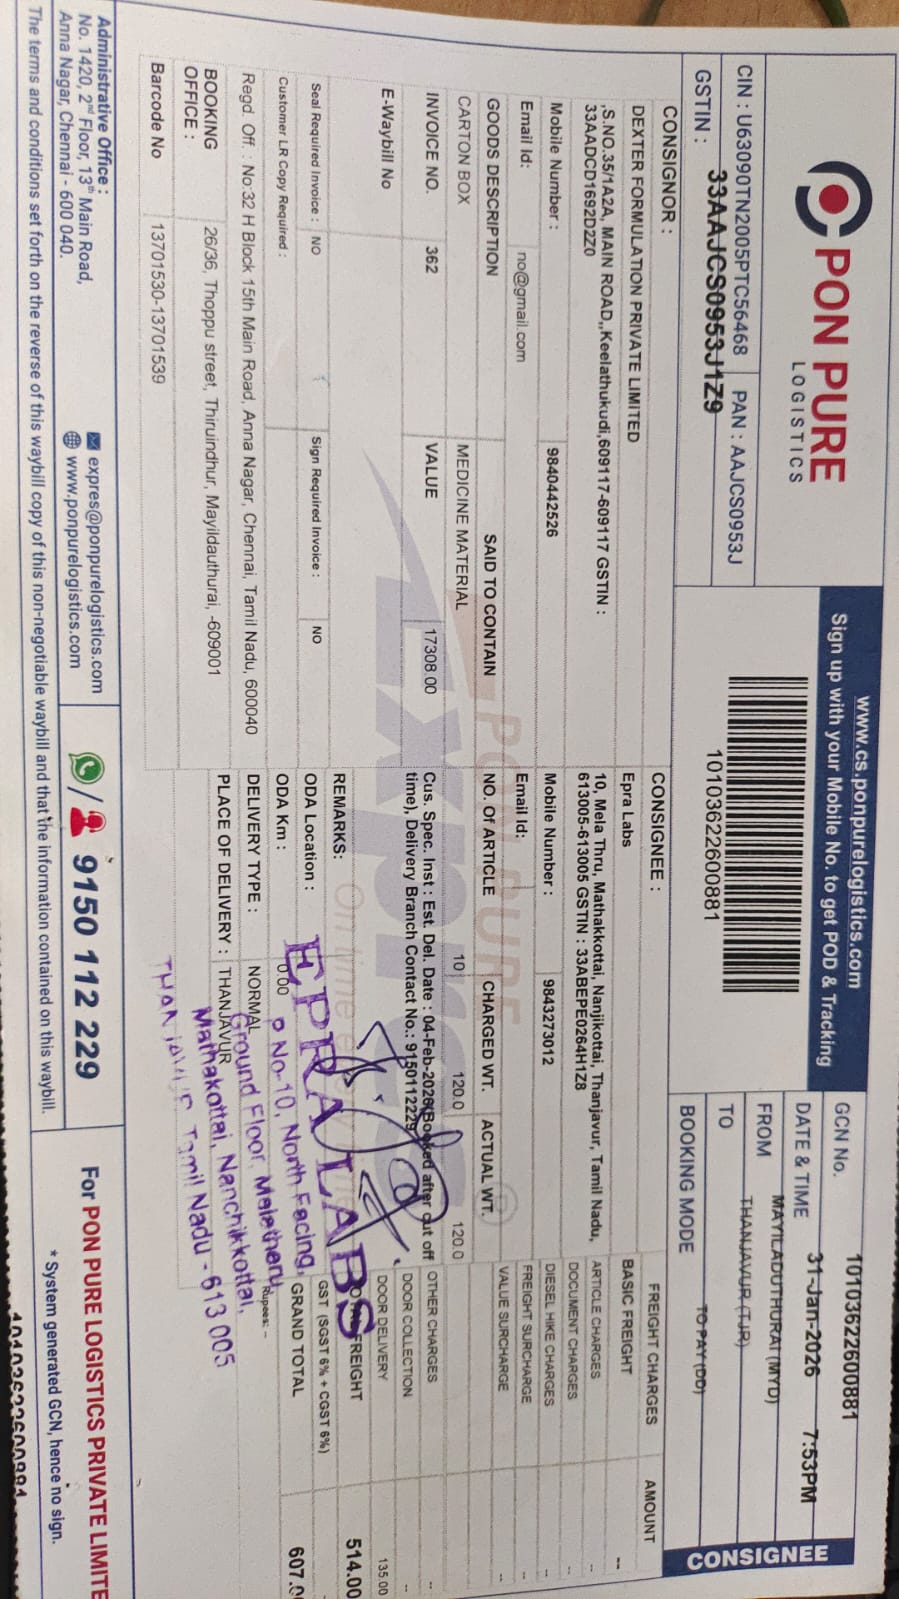 PON PURE
LOGISTICS
CIN : U63090TN2005PTC56468 PAN : AAJCS0953J
GSTIN : 33AAJCS0953J1Z9
www.cs.ponpurelogistics.com
Sign up with your Mobile No. to get POD & Tracking
10103622600881
GCN No. 10103622600881
DATE & TIME 31-Jan-2026 7:53PM
FROM MAYILADUTHURAI (MYD)
TO THANJAVUR (TJR)
BOOKING MODE TO PAY (DD)
CONSIGNEE
CONSIGNOR :
DEXTER FORMULATION PRIVATE LIMITED
,S.NO.35/1A2A, MAIN ROAD,,Keelathukudi,609117-609117 GSTIN :
33AADCD1692D2Z0
Mobile Number : 9840442526
Email Id: no@gmail.com
CONSIGNEE :
Epra Labs
10, Mela Thru, Mathakkottai, Nanjikottai, Thanjavur, Tamil Nadu,
613005-613005 GSTIN : 33ABEPE0264H1Z8
Mobile Number : 9843273012
Email Id:
GOODS DESCRIPTION SAID TO CONTAIN NO. Of ARTICLE CHARGED WT. ACTUAL WT.
CARTON BOX MEDICINE MATERIAL 10 120.0 120.0
INVOICE NO. 362 VALUE 17308.00
E-Waybill No
Cus. Spec. Inst : Est. Del. Date : 04-Feb-2026(Booked after cut off
time), Delivery Branch Contact No.: 9150112229
REMARKS:
Seal Required Invoice : NO Sign Required Invoice : NO
Customer LR Copy Required :
ODA Location :
ODA Km : 0.00
Regd. Off. : No:32 H Block 15th Main Road, Anna Nagar, Chennai, Tamil Nadu, 600040
DELIVERY TYPE : NORMAL
BOOKING OFFICE : 26/36, Thoppu street, Thiruindhur, Mayildauthurai, -609001
PLACE OF DELIVERY : THANJAVUR
Barcode No 13701530-13701539
FREIGHT CHARGES AMOUNT
BASIC FREIGHT --
ARTICLE CHARGES --
DOCUMENT CHARGES --
DIESEL HIKE CHARGES --
FREIGHT SURCHARGE --
VALUE SURCHARGE --
OTHER CHARGES --
DOOR COLLECTION --
DOOR DELIVERY 135.00
FREIGHT 514.00
GST (SGST 6% + CGST 6%)
GRAND TOTAL 607.0
Rupees: –
EPRA LABS
P No-10, North Facing,
Ground Floor, Melatheru,
Mathakottai, Nanchikkottai,
THANJAVUR Tamil Nadu - 613 005
PON PURE
Express
On time
Administrative Office :
No. 1420, 2nd Floor, 13th Main Road,
Anna Nagar, Chennai - 600 040.
expres@ponpurelogistics.com
www.ponpurelogistics.com
/ 9150 112 229
For PON PURE LOGISTICS PRIVATE LIMITE
* System generated GCN, hence no sign.
The terms and conditions set forth on the reverse of this waybill copy of this non-negotiable waybill and that the information contained on this waybill.